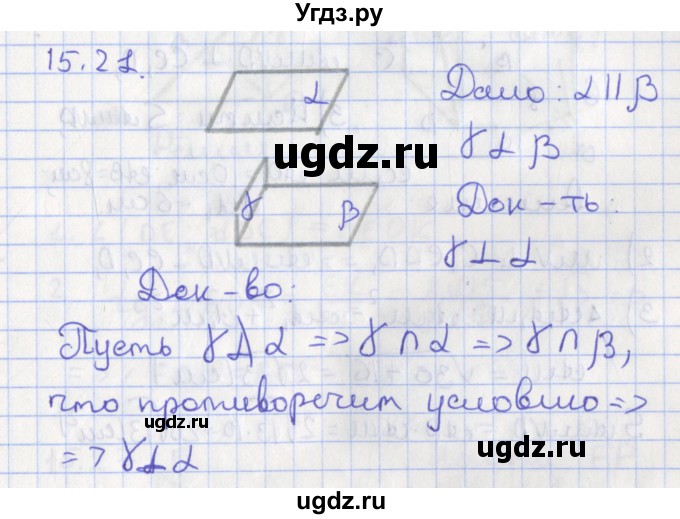 Угдз.ру
15.21.
α
Дано: α || β
ugdz.ru
γ ⊥ β
γ β
Док-ть:
γ ⊥ α
Док-во:
Пусть γ ⊥̸ α => γ ∩ α => γ ∩ β,
что противоречит условию =>
ugdz.ru
=> γ ⊥ α
ugdz.ru